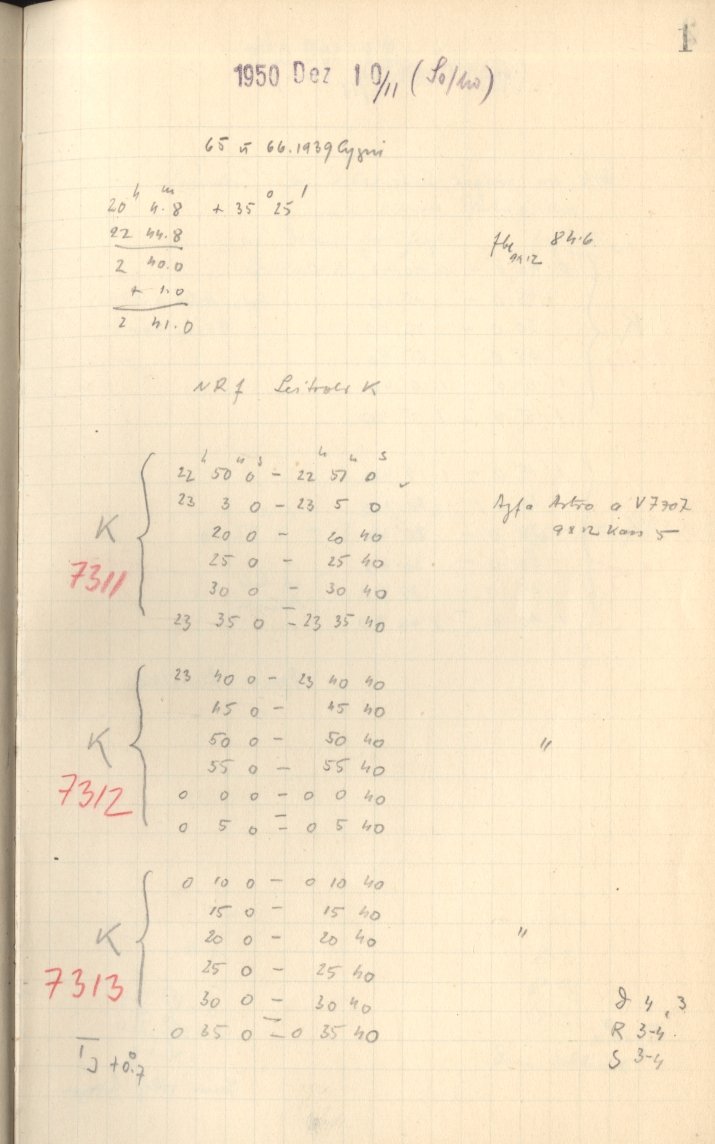 1
1950 Dez 10/11 (So/Mo)
65 u 66.1939 Cygni
20ʰ 4.8ᵐ + 35° 25'
22 44.8
2 40.0
+ 1.0
2 41.0
84.6
K
22ʰ 50ᵐ 0ˢ - 22ʰ 51ᵐ 0ˢ
23 3 0 - 23 5 0
Agfa Astro
20 0 - 20 40
K
25 0 - 25 40
7311
30 0 - 30 40
23 35 0 - 23 35 40
23 40 0 - 23 40 40
45 0 - 45 40
K
50 0 - 50 40 "
55 0 - 55 40
7312
0 0 0 - 0 0 40
0 5 0 - 0 5 40
0 10 0 - 0 10 40
15 0 - 15 40
K
20 0 - 20 40 "
25 0 - 25 40
7313
30 0 - 30 40
0 35 0 - 0 35 40
+0.7
4,3
R 3-4.
S 3-4